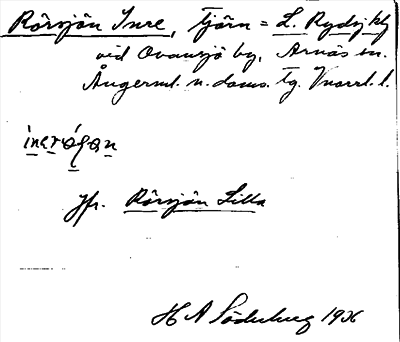 Rörsjön Inre, Tjärn = L. Rydsj kt
vid Ovansjö by, Arnäs sn.
Ångerml. n. doms. tg. Vnorrl. l.
inerǿgɑn
Jfr. Rörsjön Lilla
H A Söderberg 1936